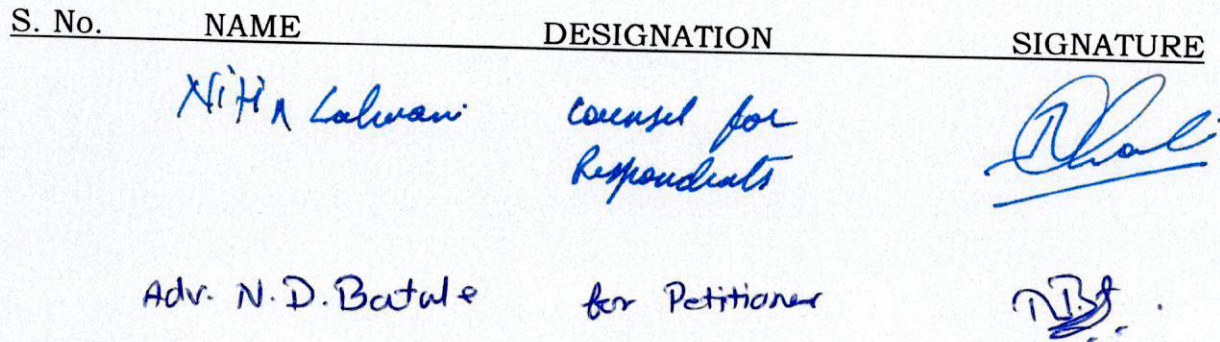 S. No. NAME DESIGNATION SIGNATURE
Nitin Lalwani counsel for
Respondents
Adv. N.D. Batule for Petitioner